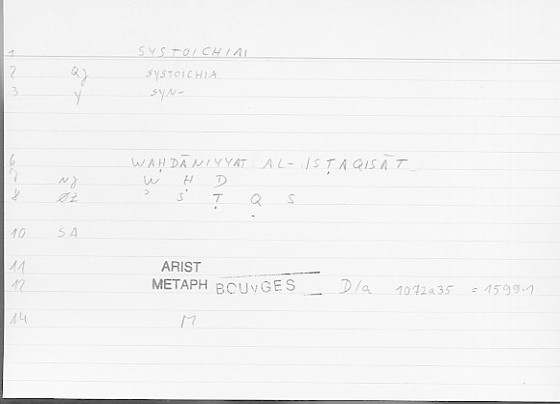 1 SYSTOICHIAI
2 Qz SYSTOICHIA
3 Y SYN-
6 WAḤDĀNIYYAT AL-ISṬAQISĀT
7 Nz W Ḥ D
8 ØZ ʾ S Ṭ Q S
10 SA
11 ARIST
12 METAPH BOUYGES D/a 1072a35 = 1599.1
14 M